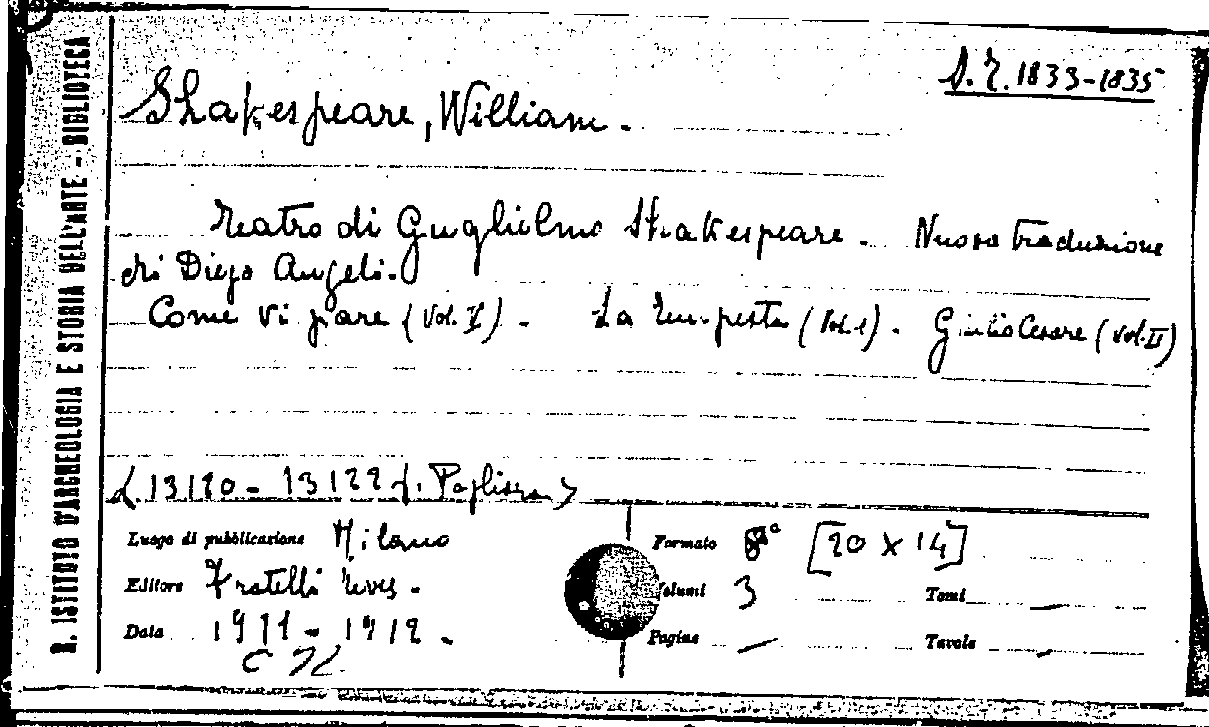 R. ISTITUTO D'ARCHEOLOGIA E STORIA DELL'ARTE - BIBLIOTECA
S. T. 1833-1835
Shakespeare, William.
Teatro di Guglielmo Shakespeare. Nuova traduzione
di Diego Angeli.
Come vi pare (Vol. X). - La Tempesta (Vol. 1). - Giulio Cesare (Vol. II)
13120 - 13122
Luogo di pubblicazione Milano
Formato 8° [20 x 14]
Editore Fratelli Treves.
Volumi 3 Tomi —
Data 1911 - 1912.
Pagine — Tavole —